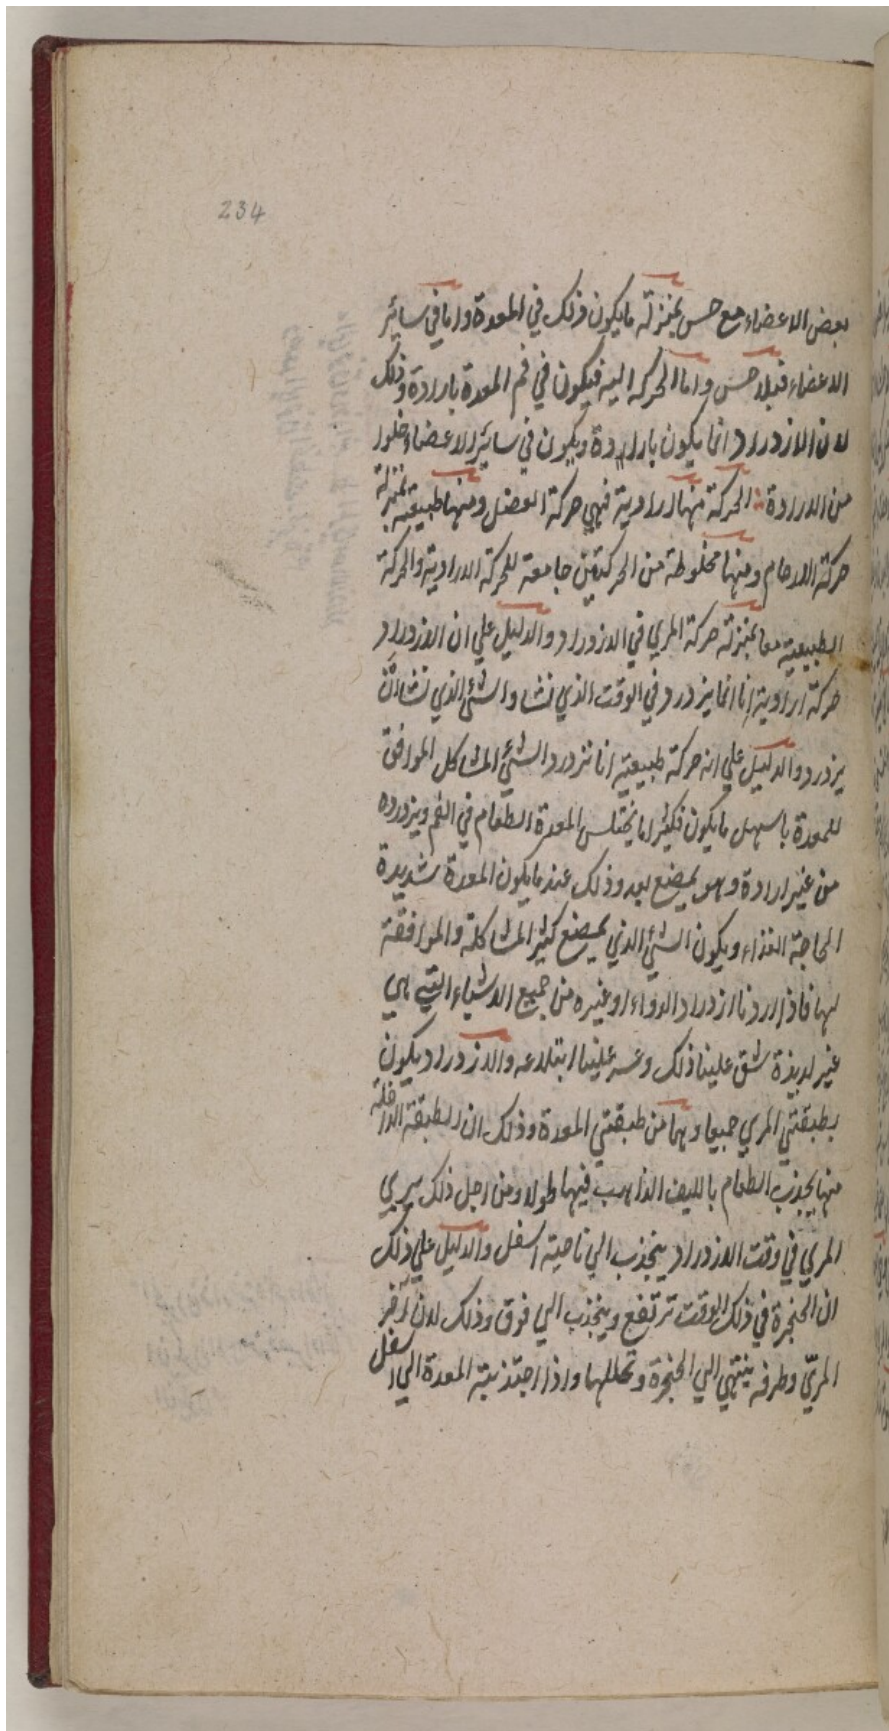 234
بعض الاعضاء مع حس بمنزلة ما يكون ذلك في المعدة واما في سائر
الاعضاء فبلا حس واما الحركه اليه فيكون في فم المعدة بارادة وذلك
لان الازدراد انما يكون بارادة ويكون في سائر الاعضاء خلوا
من الارادة الحركة منها ارادية فهي حركة العضل ومنها طبيعية بمنزلة
حركة الارحام ومنها مخلوطة من الحركتين جامعة للحركة الارادية والحركة
الطبيعية معا بمنزلة حركة المري في الازدراد والدليل علي ان الازدراد
حركة ارادية انا انما يزدرد في الوقت الذي نشا والشئ الذي نشا ان
يزدرد والدليل علي انه حركة طبيعية انا نزدرد الشئ المشاكل الموافق
للمعدة باسهل ما يكون فكثيرا ما يختلس المعدة الطعام في الفم ويزدرده
من غير ارادة وهو يمضغ بعد وذلك عند ما يكون المعدة شديدة
الحاجة الغذاء ويكون الشئ الذي يمضغ كثير المشاكلة والموافقة
لها فاذا اردنا ازدراد الدواء او غيره من جميع الاشياء التي هي
غير لذيذة شق علينا ذلك وعسر علينا ابتلاعه والازدراد يكون
بطبقتي المري جميعا وهما من طبقتي المعدة وذلك ان الطبقة الداخلة
منها يجذب الطعام بالليف الذاهب فيها طولا ومن اجل ذلك يري
المري في وقت الازدراد ينجذب الي ناحية اسفل والدليل علي ذلك
ان الحنجرة في ذلك الوقت ترتفع وينجذب الي فوق وذلك لان اخر
المريّ وطرفه ينتهي الي الحنجرة وتحللها واذا اجتذبته المعدة الي اسفل